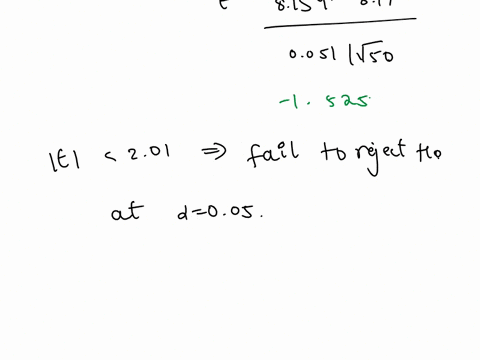 0.051 / √50
-1.525
|t| < 2.01 ⇒ fail to reject H₀
at α=0.05.